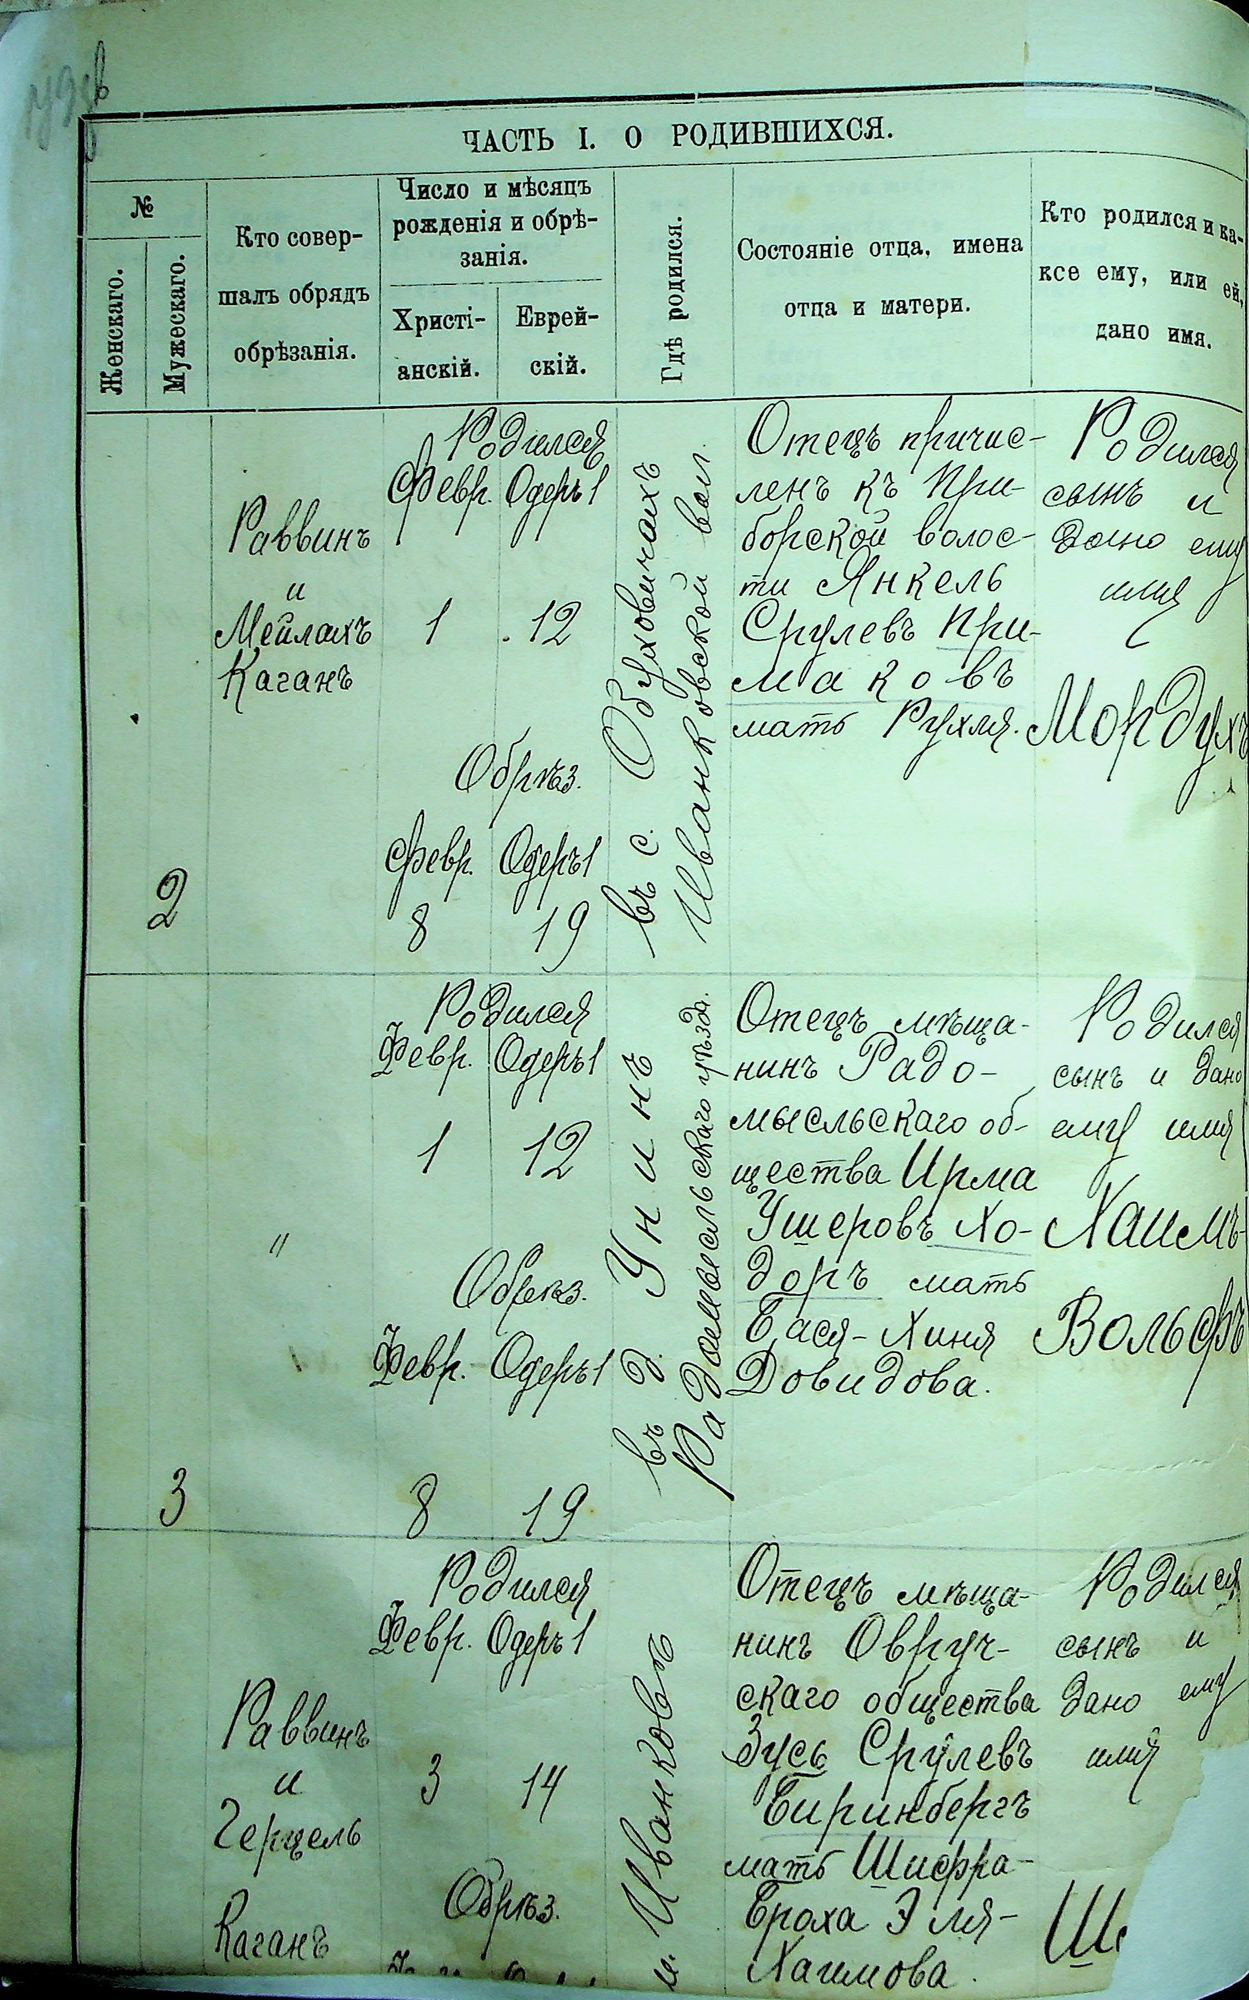 ЧАСТЬ I. О РОДИВШИХСЯ.
№
Женскаго.
Мужескаго.
Кто совер-
шалъ обрядъ
обрѣзанія.
Число и мѣсяцъ
рожденія и обрѣ-
занія.
Христі-
анскій.
Еврей-
скій.
Гдѣ родился.
Состояніе отца, имена
отца и матери.
Кто родился и ка-
ксе ему, или ей,
дано имя.
2
Раввинъ
и
Мейлахъ
Каганъ
Родился
Февр. Одеръ 1
1 12
Обрѣз.
Февр. Одеръ 1
8 19
въ с. Обуховичахъ
Иванковской вол.
Отецъ причис-
ленъ къ При-
борской волос-
ти Янкель
Срулевъ При-
маковъ
мать Рухля.
Родился
сынъ и
дано ему
имя
Мордухъ
3
"
Родился
Февр. Одеръ 1
1 12
Обрѣз.
Февр. Одеръ 1
8 19
въ д. Унинъ
Радомысльскаго уѣзда.
Отецъ мѣща-
нинъ Радо-
мысльскаго об-
щества Ирма
Ушеровъ Хо-
доръ мать
Бася-Хиня
Довидова.
Родился
сынъ и дано
ему имя
Хаимъ-
Вольфъ
Раввинъ
и
Герцель
Каганъ
Родился
Февр. Одеръ 1
3 14
Обрѣз.
м. Иванковъ
Отецъ мѣща-
нинъ Овруч-
скаго общества
Зусь Срулевъ
Биринбергъ
мать Шифра-
Броха Эля-
Хаимова.
Родился
сынъ и
дано ему
имя